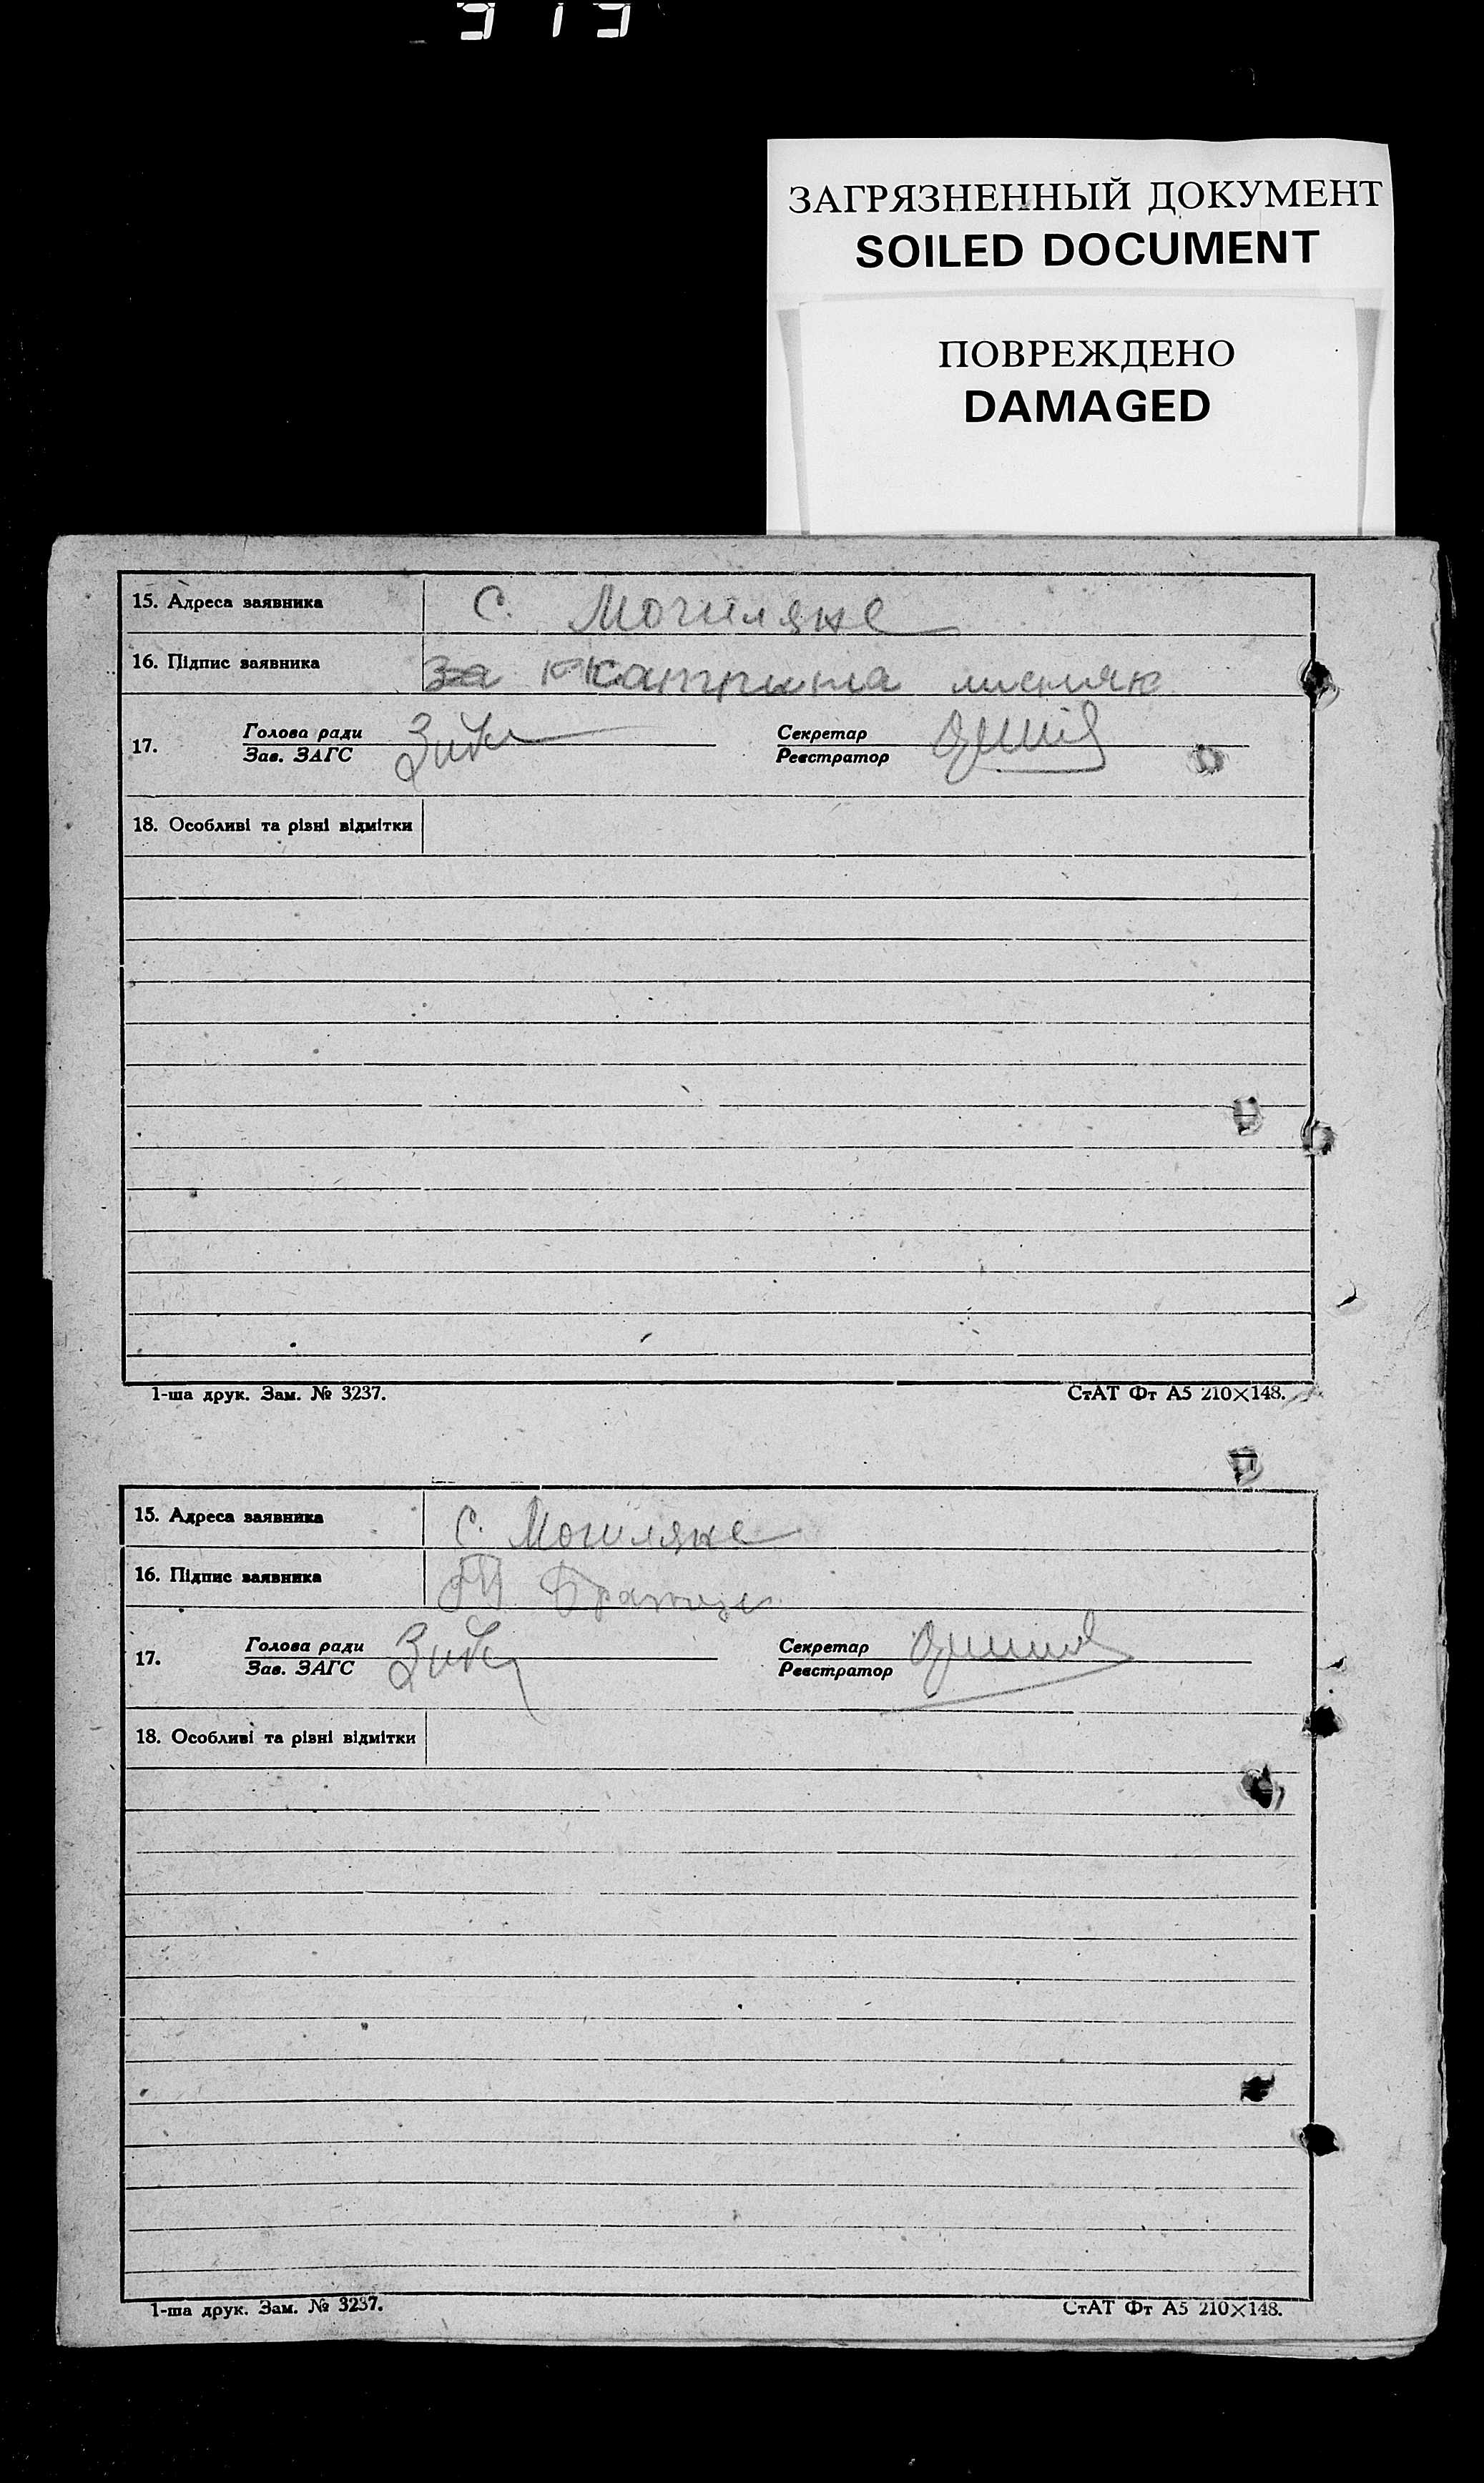 ЗАГРЯЗНЕННЫЙ ДОКУМЕНТ
SOILED DOCUMENT
ПОВРЕЖДЕНО
DAMAGED
15. Адреса заявника С. Могиляне
16. Підпис заявника за
17. Голова ради Секретар
Зав. ЗАГС Реєстратор
18. Особливі та різні відмітки
1-ша друк. Зам. № 3237. СтАТ Фт А5 210×148.
15. Адреса заявника С. Могиляне
16. Підпис заявника
17. Голова ради Секретар
Зав. ЗАГС Реєстратор
18. Особливі та різні відмітки
1-ша друк. Зам. № 3237. СтАТ Фт А5 210×148.